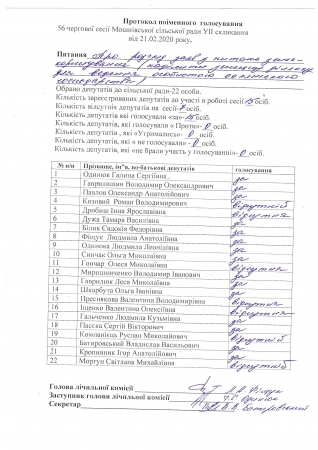 Протокол поіменного голосування
56 чергової сесії Мошнівської сільської ради УІІ скликання
від 21.02.2020 року.
Питання Про розгляд заяв з питань
для ведення особистого селянського
господарства
Обрано депутатів до сільської ради-22 особи.
Кількість зареєстрованих депутатів до участі в роботі сесії 15 осіб.
Кількість відсутніх депутатів на сесії 7 осіб.
Кількість депутатів, які голосували «за» 15 осіб.
Кількість депутатів, які голосували « Проти» 0 осіб.
Кількість депутатів , які «Утримались» 0 осіб.
Кількість депутатів, які « не голосували» 0 осіб.
Кількість депутатів, які «не брали участь у голосуванні» 0 осіб.
№ п/п Прізвище, ім"я, по-батькові депутатів голосування
1 Одинюк Галина Сергіївна . за
2 Гаврилишин Володимир Олександрович за
3 Павлов Олександр Анатолійович за
4 Козовий Роман Володимирович відсутній
5 Дробиш Інна Ярославівна відсутня
6 Дужа Тамара Василівна за
7 Білик Євдокія Федорівна за
8 Фіщук Людмила Анатоліївна за
9 Одинюва Людмила Леонідівна за
10 Сничак Ольга Миколаївна за
11 Гончар Олеся Миколаївна відсутня
12 Мирошниченко Володимир Іванович відсутній
13 Гаврилюк Леся Миколаївна за
14 Шкарбута Ольга Іванівна за
15 Преснякова Валентина Володимирівна відсутня
16 Іщенко Валентина Олексіївна за
17 Гальченко Людмила Кузьмівна за
18 Пасска Сергій Вікторович за
19 Компанієць Руслан Миколайович відсутній
20 Багировський Владислав Васильович за
21 Кропивник Ігор Анатолійович за
22 Моргун Світлана Михайлівна відсутній
Голова лічильної комісії
Заступник голови лічильної комісії
Секретар